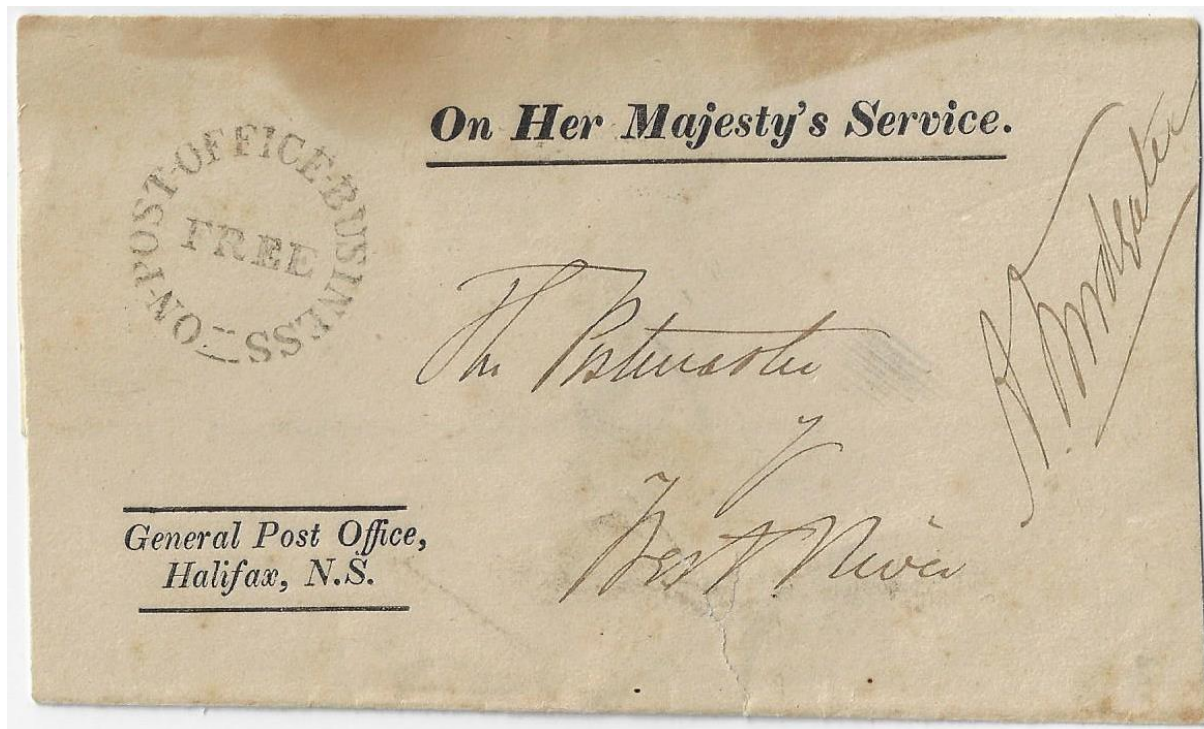 On Her Majesty's Service.
ON·POST·OFFICE·BUSINESS
FREE
The Postmaster
West River
General Post Office,
Halifax, N.S.